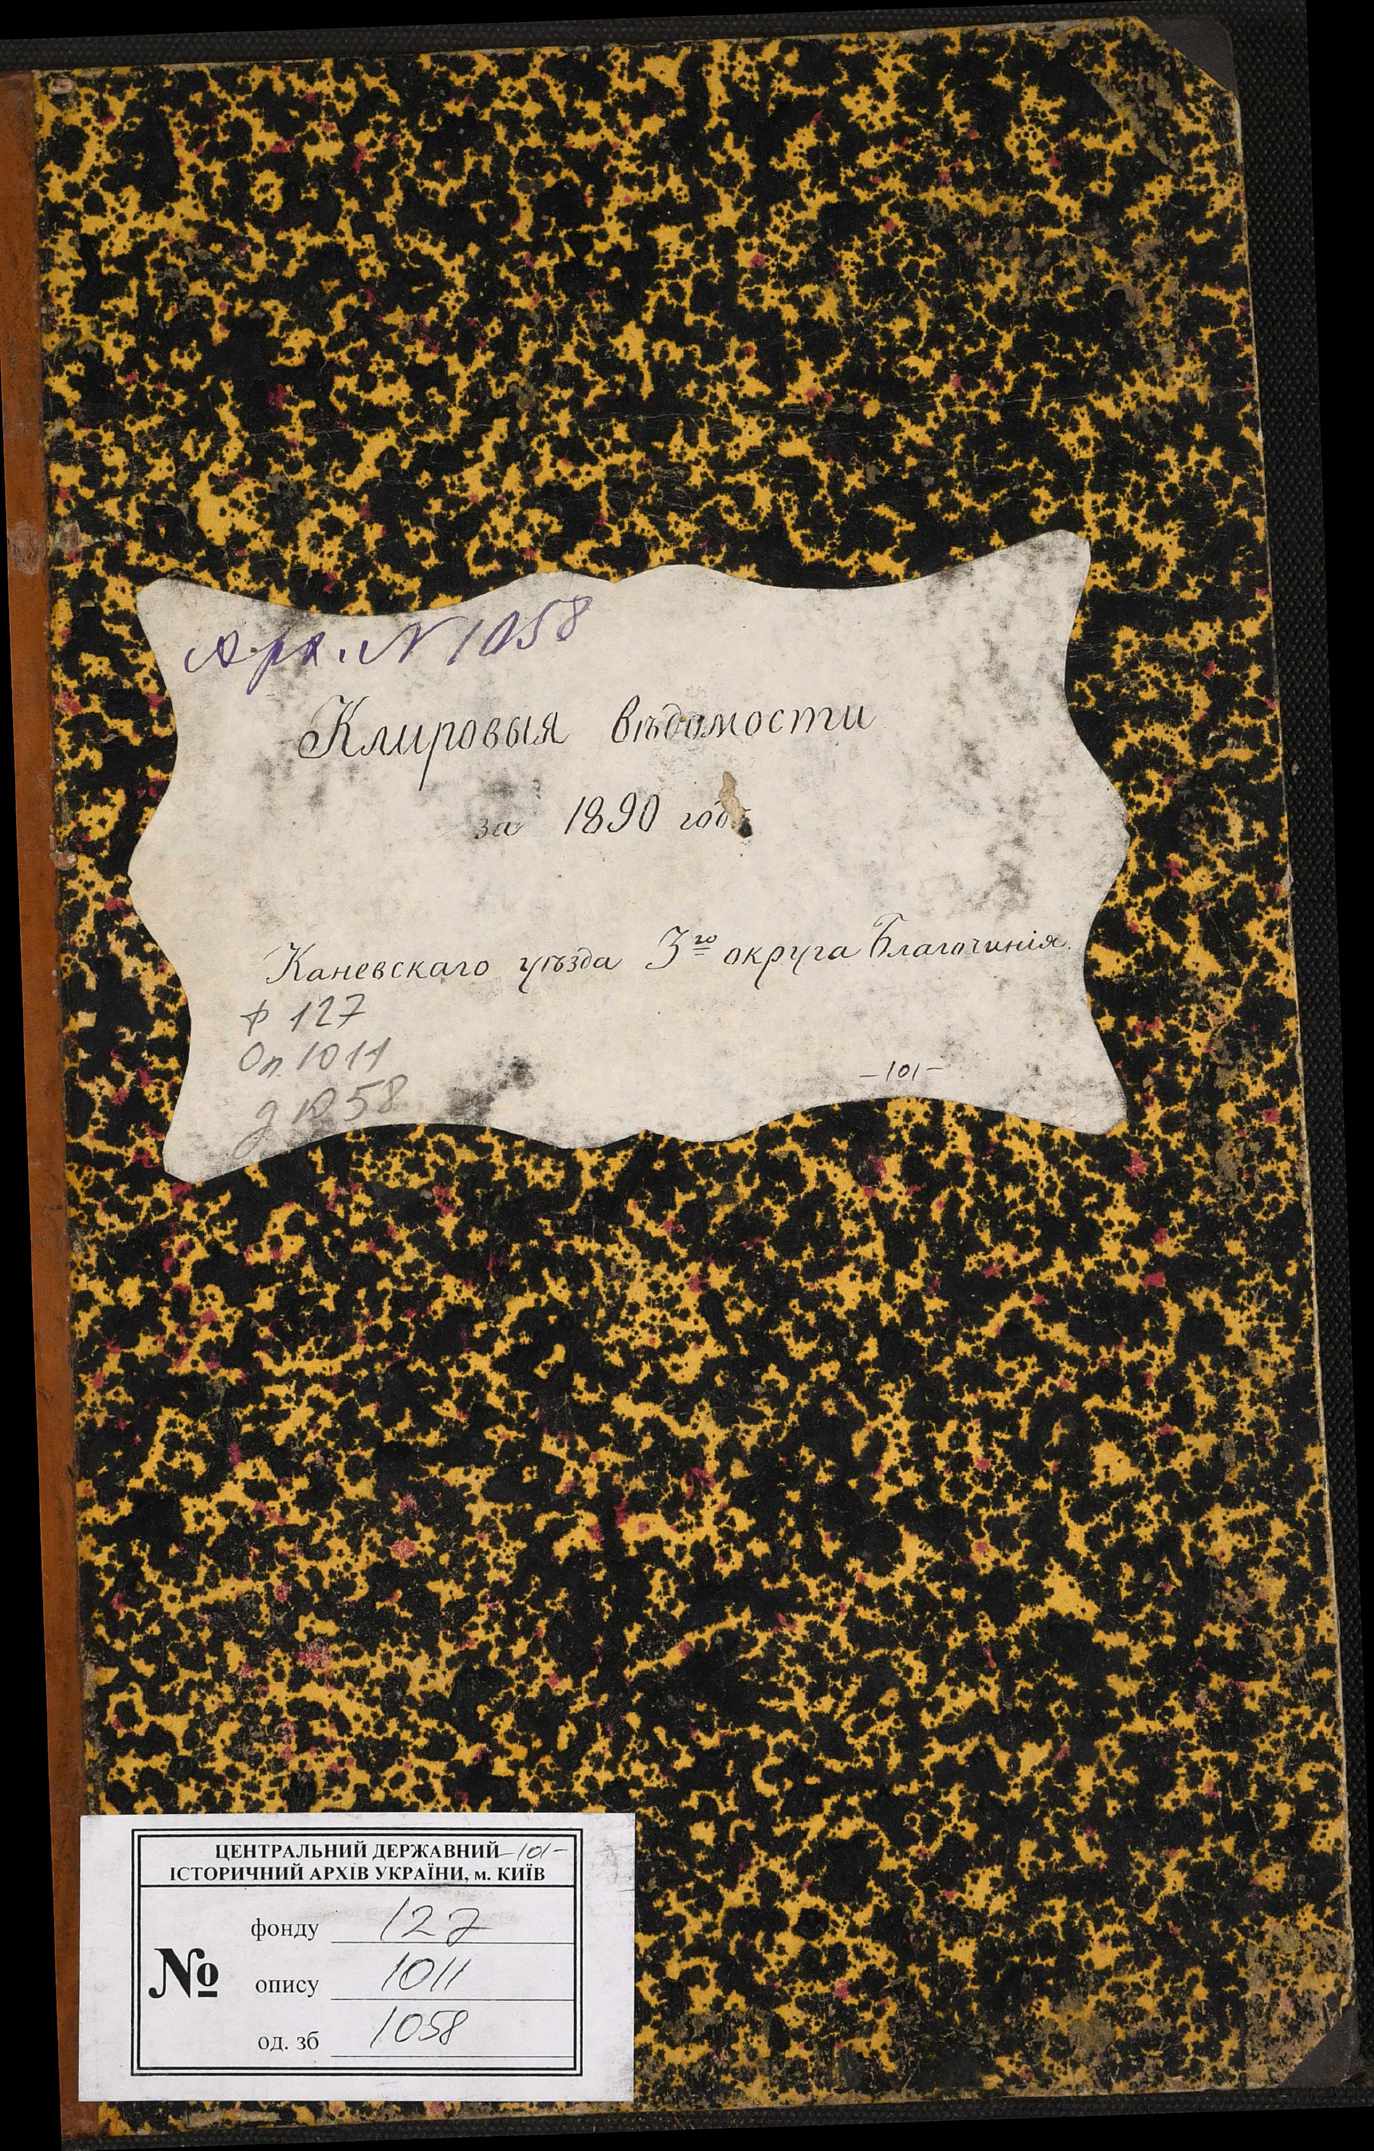 Арх. № 1058
Клировыя вѣдомости
за 1890 годъ
Каневскаго уѣзда 3го округа Благочинія.
ф 127
Оп. 1011
д 1058
-101-
ЦЕНТРАЛЬНИЙ ДЕРЖАВНИЙ -101-
ІСТОРИЧНИЙ АРХІВ УКРАЇНИ, м. КИЇВ
фонду 127
№ опису 1011
од. зб 1058